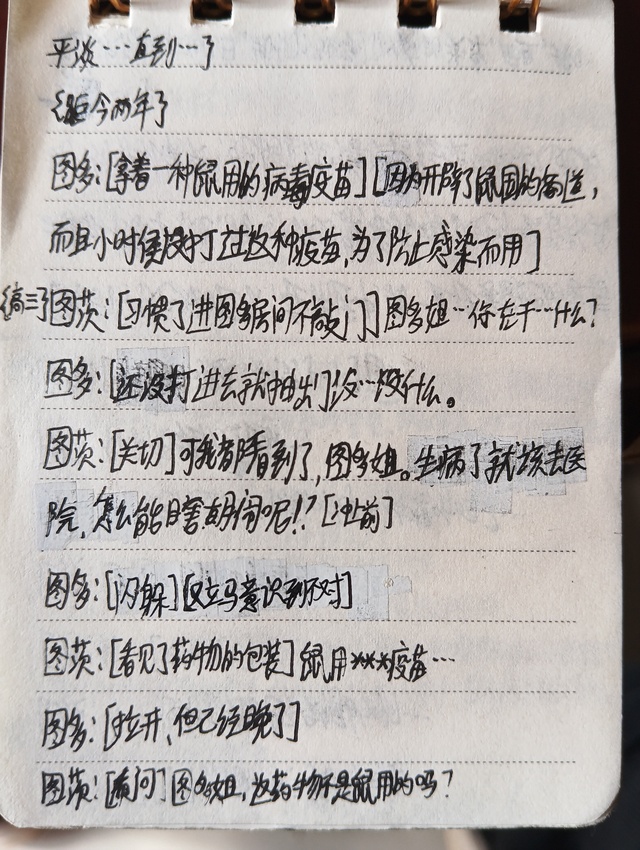 平淡…直到…了
距今两年了
图多:[拿着一种鼠用的病毒疫苗][因为开辟了鼠国的通道,
而且小时候没打过这种疫苗,为了防止感染而用]
{高三了图茨:[习惯了进图多房间不敲门]图多姐…你在干…什么?
图多:[还没打进去就抽出]没…没什么。
图茨:[关切]可我都看到了,图多姐。生病了就该去医
院,怎么能瞎胡闹呢!?[冲前]
图多:[闪躲][又立马意识到不对]
图茨:[看见了药物的包装]鼠用***疫苗…
图多:[拉开,但已经晚了]
图茨:[质问]图多姐,这药物不是鼠用的吗?